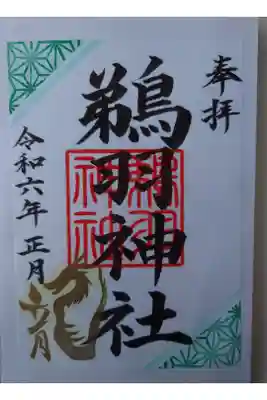 奉拝
鵜羽神社
令和六年 正月
鵜羽
神社